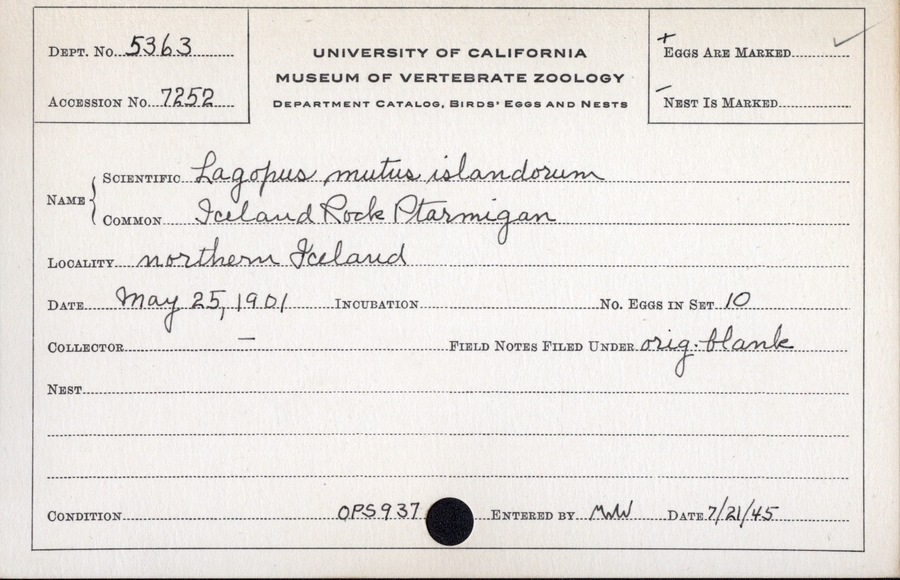 Dept. No. 5363
Accession No. 7252
UNIVERSITY OF CALIFORNIA
MUSEUM OF VERTEBRATE ZOOLOGY
Department Catalog, Birds' Eggs and Nests
+ Eggs Are Marked ✓
– Nest Is Marked
Name { Scientific Lagopus mutus islandorum
Common Iceland Rock Ptarmigan
Locality northern Iceland
Date May 25, 1901 Incubation No. Eggs in Set 10
Collector – Field Notes Filed Under orig. blank
Nest
Condition OPS937 Entered by MWW Date 7/21/45